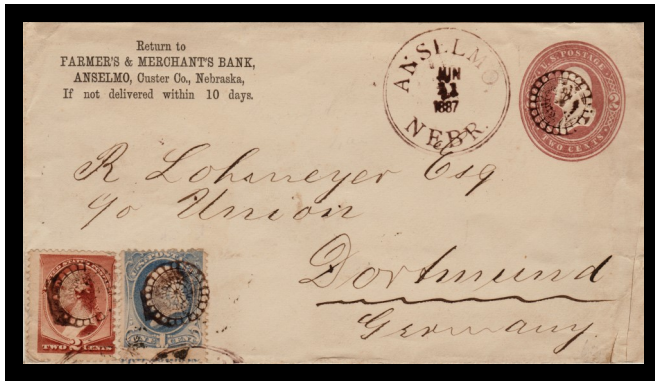 Return to
FARMER'S & MERCHANT'S BANK,
ANSELMO, Custer Co., Nebraska,
If not delivered within 10 days.
ANSELMO,
JUN
1887
NEBR.
U.S. POSTAGE
2 2
TWO CENTS
R Lohmeyer Esq
c/o Union
Dortmund
Germany
TWO 2 CENTS
ONE 1 CENT